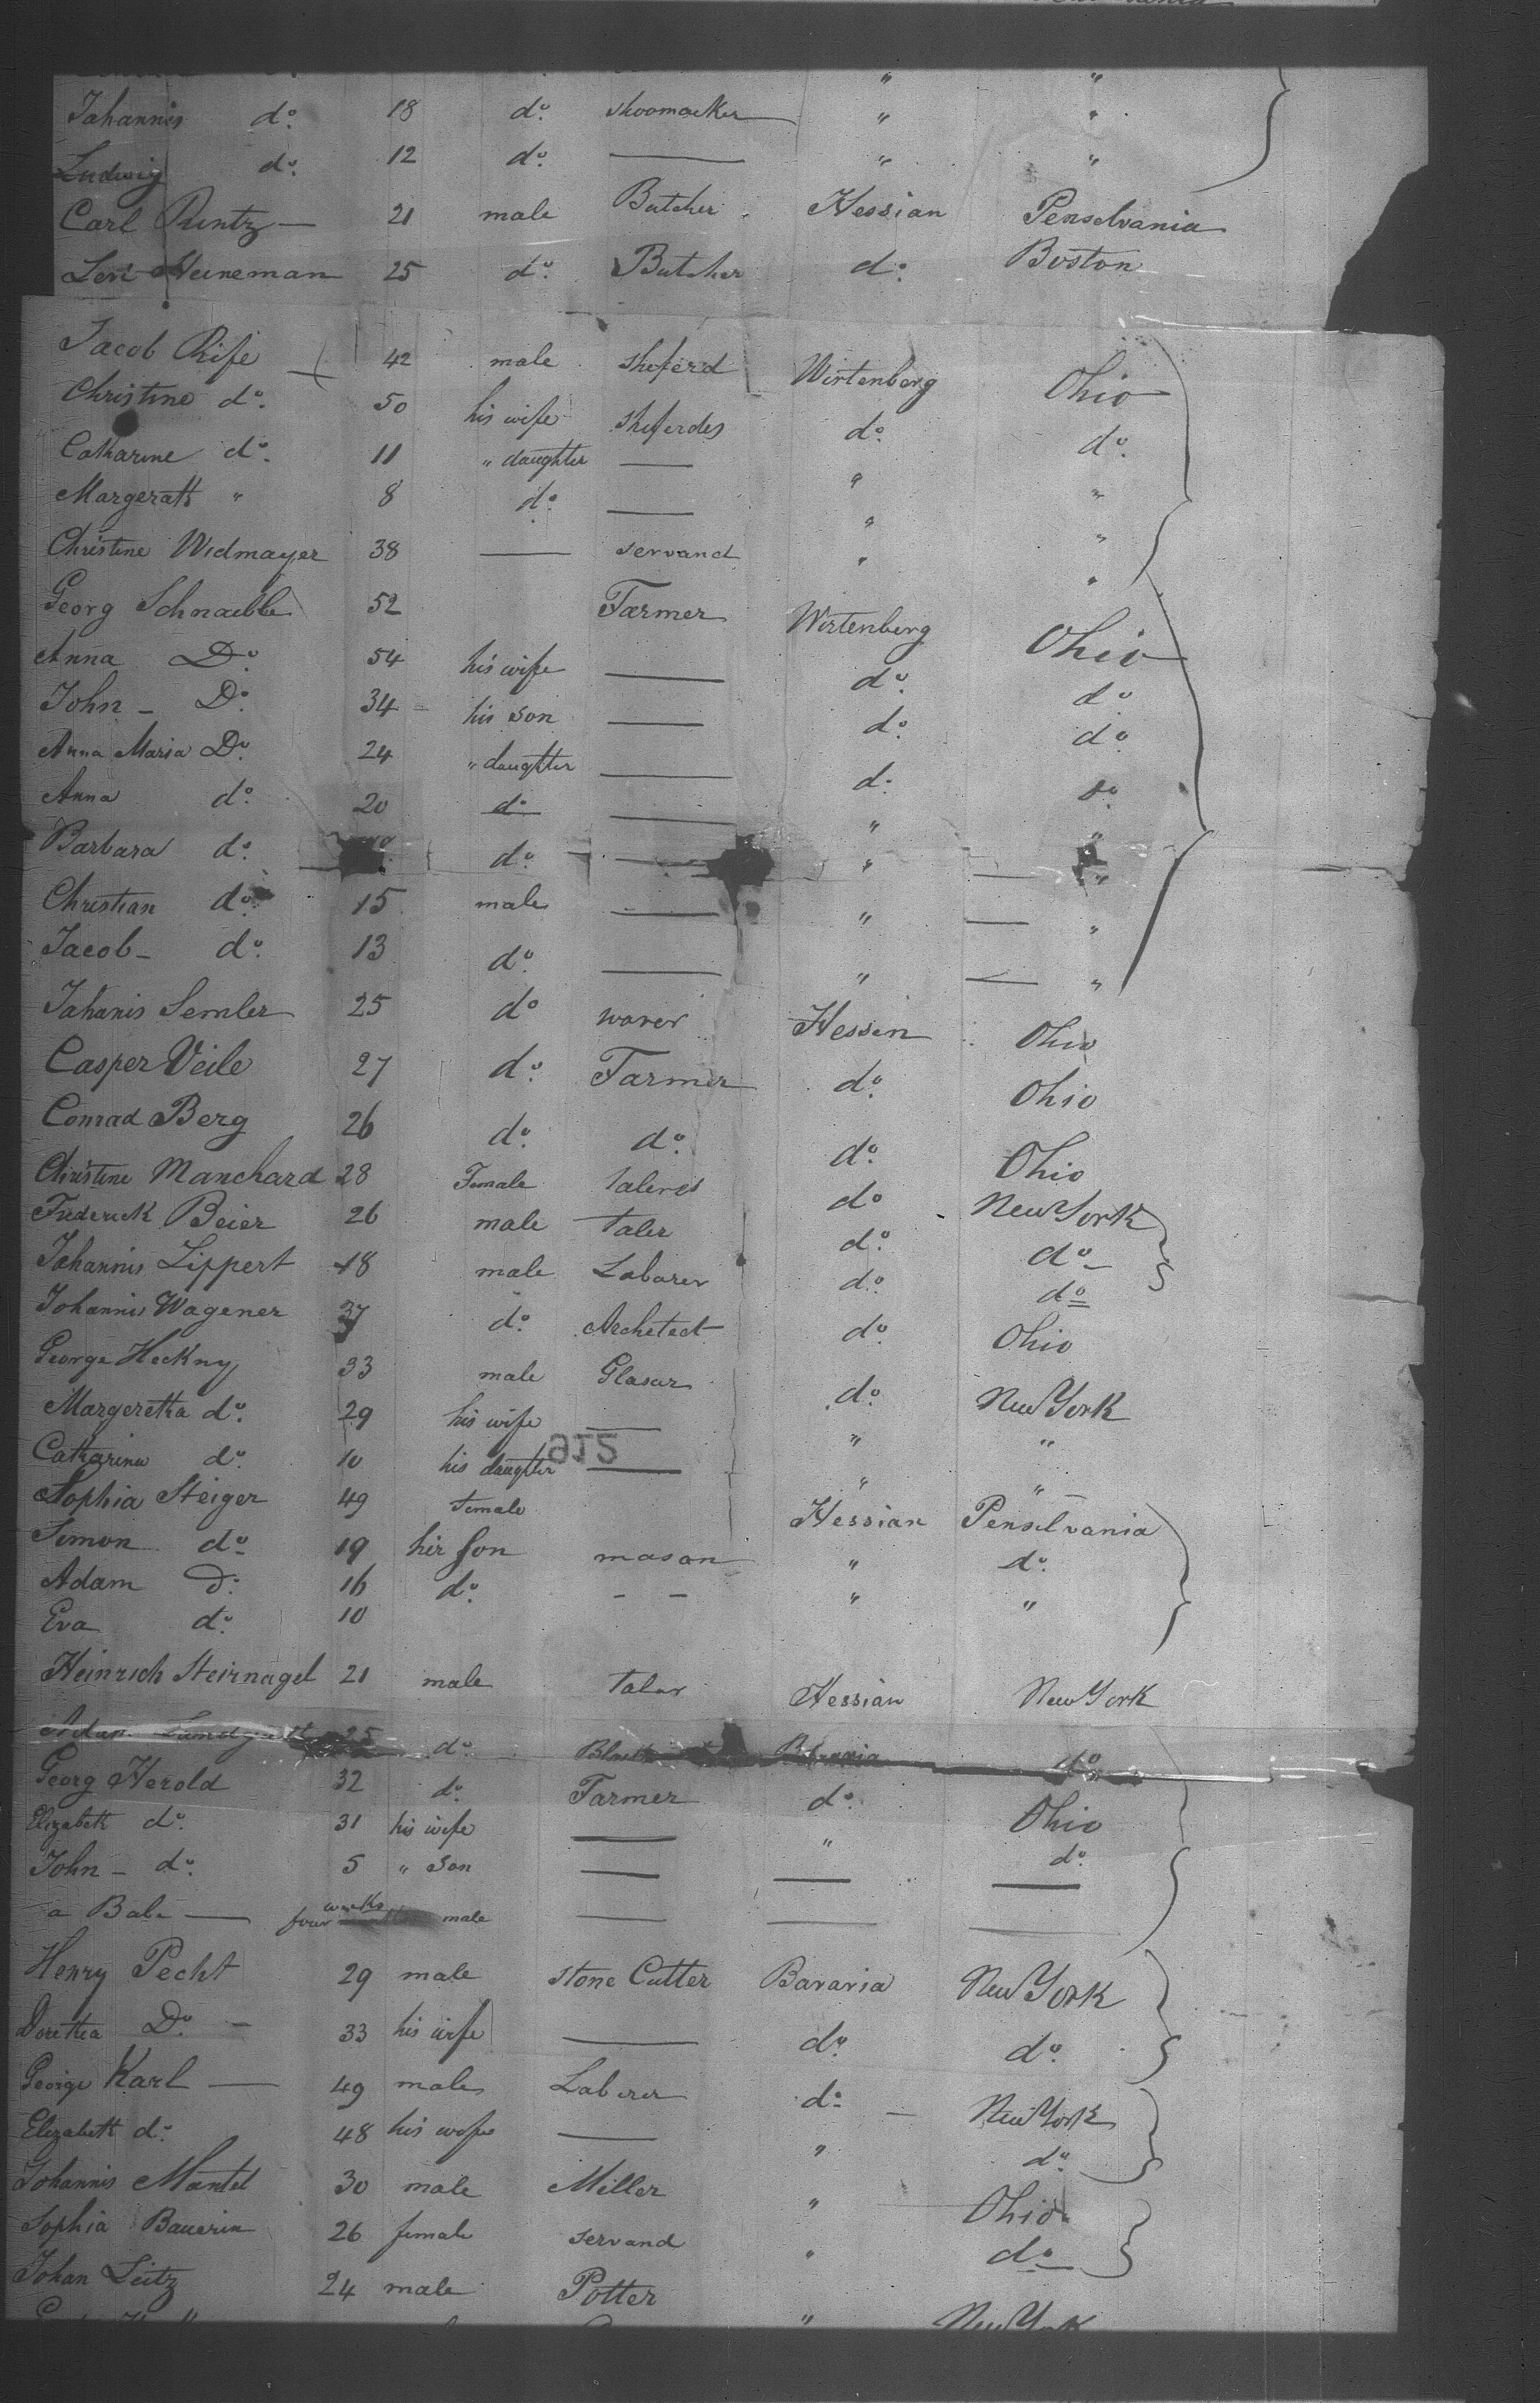 " "
Johannis do. 18 do. shoomacker " "
Ludwig do. 12 do. — " "
Carl Runtz — 21 male Butcher Hessian Penselvania
Levi Heineman 25 do. Butcher do. Boston
Jacob Rife 42 male sheferd Wirtenberg Ohio
Christine do. 50 his wife sheferdes do. do.
Catharine do. 11 " daughter — " "
Margerath " 8 do. — " "
Christine Widmayer 38 — servand " "
Georg Schnaible 52 Farmer Wirtenberg Ohio
Anna Do. 54 his wife — do. do.
John - Do. 34 his son — do. do.
Anna Maria Do. 24 " daughter — do. do.
Anna do. 20 do — " "
Barbara do. do. — " — "
Christian do. 15 male — " — "
Jacob - do. 13 do. — " — "
Johanis Semler 25 do waver Hessen Ohio
Casper Veile 27 do. Farmer do. Ohio
Conrad Berg 26 do. do. do. Ohio
Christine Manchard 28 Female talerés do New York
Frederick Beier 26 male taler do. do
Johannis Lippert 18 male Labarer do. do
Johannis Wagener 37 do. Architect do. Ohio
George Heckny 33 male Glasur do. New York
Margeretha do. 29 his wife — " "
Catharina do. 10 his daughter — " "
912
Sophia Steiger 49 female Hessian Penselvania
Simon do 19 her son mason " do.
Adam do. 16 do. - - " "
Eva do. 10
Heinrich Steirnagel 21 male talar Hessian New York
Adam 25 do. Bavaria do
Georg Herold 32 do. Farmer do. Ohio
Elizabeth do. 31 his wife — " do.
John - do. 5 " son — — —
a Babe — four weeks male — — —
Henry Pecht 29 male stone Cutter Bavaria New York
Dorethea Do. - 33 his wife — do. do.
George Karl — 49 male Laberer do. - New York
Elizabeth do. 48 his wife — " do.
Johannis Mantel 30 male Miller " Ohio
Sophia Bauerin 26 female servand " do
Johan Seitz 24 male Potter
" New York